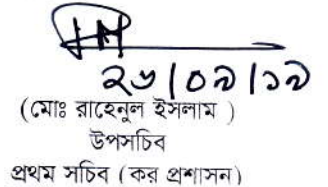 ২৬/০৯/১৯
(মোঃ রাহেনুল ইসলাম )
উপসচিব
প্রথম সচিব (কর প্রশাসন)